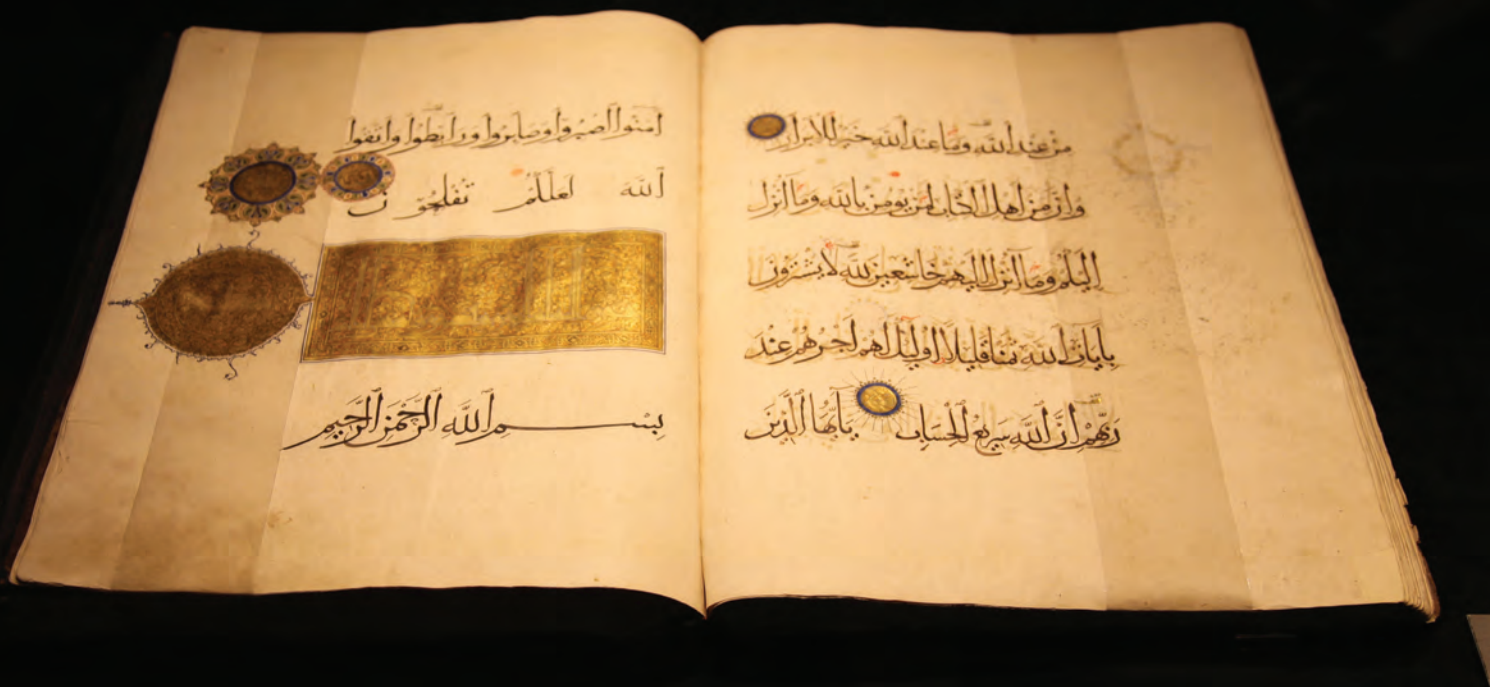 من عند الله وما عند الله خير للأبرار
وإن من أهل الكتاب لمن يؤمن بالله وما أنزل
إليكم وما أنزل إليهم خاشعين لله لا يشترون
بآيات الله ثمنا قليلا أولئك لهم أجرهم عند
ربهم إن الله سريع الحساب يأيها الذين
آمنوا اصبروا وصابروا ورابطوا واتقوا
الله لعلكم تفلحون
بسم الله الرحمن الرحيم